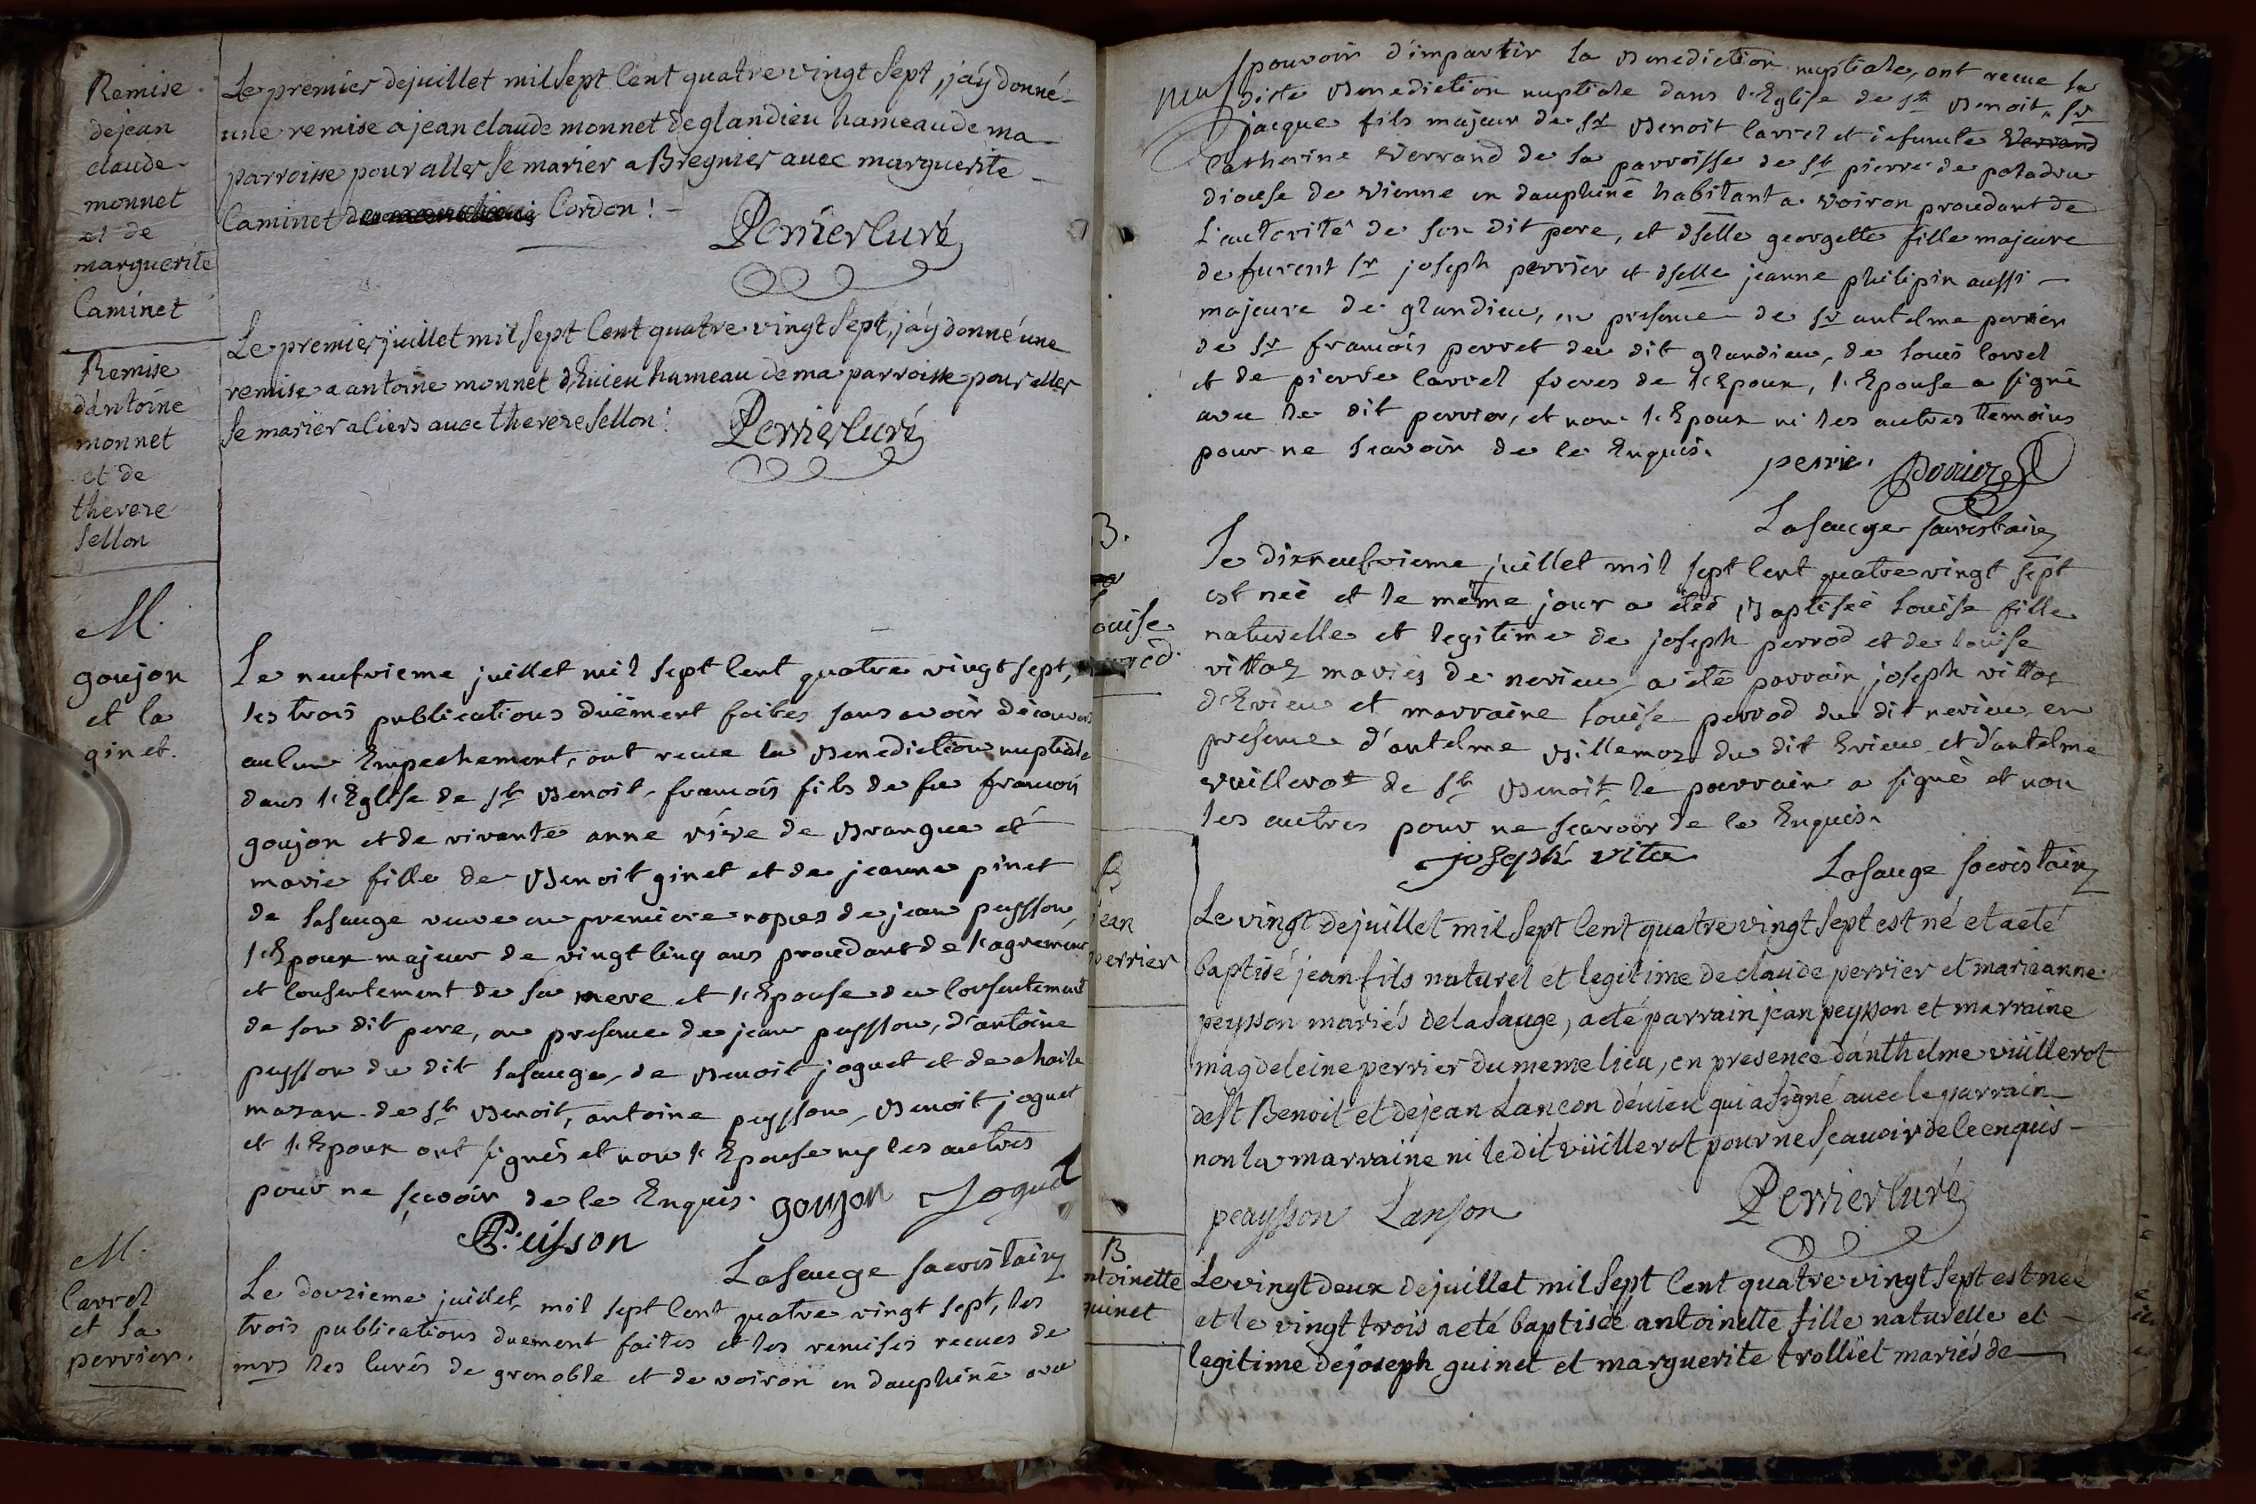 Remise
dejean
claude
monnet
et de
marguerite
Caminet
Le premier dejuillet mil sept Cent quatre vingt sept, j'aÿ donné
une remise a jean claude monnet deglandieu hameau de ma
parroisse pour aller se marier a Bregnier avec marguerite
Caminet de Cordon! -
Perrier Curé
Remise
d'antoine
monnet
et de
therese
sellon
Le premier juillet mil sept Cent quatre vingt sept, j'aÿ donné une
remise a antoine monnet d'Evieu hameau de ma parroisse pour aller
se marier a Ciers avec therese sellon!
Perrier Curé
M.
goujon
et la
ginet.
Le neufvieme juillet mil sept Cent quatre vingt sept,
les trois publications düement faites sans avoir découvert
aucun Empechement, ont recue la Benediction nuptiale
dans l'Eglise de St Benoit, francois fils de feu francois
goujon et de vivante anne vive de Brangue et
marie fille de Benoit ginet et de jeanne pinet
de lasauge veuve en premiere nopces de jean peysson,
l'Epoux majeur de vingt Cinq ans procedant de l'agrement
et Consentement de sa mere et l'Epouse du Consentement
de son dit pere, en presence de jean peysson, d'antoine
peysson du dit lasauge, de Benoit joguet et de
mazan de St Benoit, antoine peysson, Benoit joguet
et l'Epoux ont signés et non l'Epouse ny les autres
pour ne sçavoir de ce Enquis. goujon Joguet
P. eisson
Lasauge sacristain
M.
Carrel
et la
perrier.
Le douzieme juillet mil sept Cent quatre vingt sept, les
trois publications duement faites et les remises recues de
mrs les Curés de grenoble et de voiron en dauphiné avec
pouvoir d'impartir la Benediction nuptiale, ont recue la
dite Benediction nuptiale dans l'Eglise de St Benoit, Sr
jacque fils majeur de Sr Benoit Carrel et defuncte Verrand
Catherine Verrand de la parroisse de St pierre de paladru
diocese de Vienne en dauphiné habitant a Voiron procedant de
L'autorité de son dit pere, et dselle georgette fille majeure
de furent Sr joseph perrier et dselle jeanne philipin aussi
majeure de glandieu, en presence de Sr antelme perrier
de Sr francois perret du dit glandieu, de louis Carrel
et de pierre Carrel freres de l'Epoux, l'Epouse a signé
avec le dit perrier, et non l'Epoux ni les autres temoins
pour ne scavoir de ce Enquis. perrie. perrier
Lasauge sacristain
B.
ouise
Le dixneufvieme juillet mil sept Cent quatre vingt sept
est née et le même jour a étée Baptisée louise fille
naturelle et legitime de joseph perrod et de louise
vittoz mariés de nerieu, a été parrain joseph vittoz
d'Evieu et marraine louise perrod du dit nerieu en
presence d'antelme Billemoz du dit Evieu et d'antelme
vuillerot de St Benoit, le parrain a signé et non
les autres pour ne scavoir de ce Enquis.
joseph vitoz
Lasauge sacristain
B
jean
perrier
Le vingt dejuillet mil sept Cent quatre vingt sept est né et aeté
baptisé jean fils naturel et legitime de claude perrier et marieanne
peysson mariés de la sauge, aeté parrain jean peysson et marraine
magdeleine perrier du meme lieu, en presence d'anthelme vüillerot
de St Benoit et dejean Lancon d'évieu qui a signé avec le parrain
non la marraine ni ledit vüillerot pour ne sçauoir de ce enquis
peaysson Lanson
Perrier Curé
B
ntoinette
guinet
Le vingt deux dejuillet mil sept Cent quatre vingt sept est neé
et le vingt trois aeté baptisée antoinette fille naturelle et
legitime dejoseph guinet et marguerite trolliet mariés de